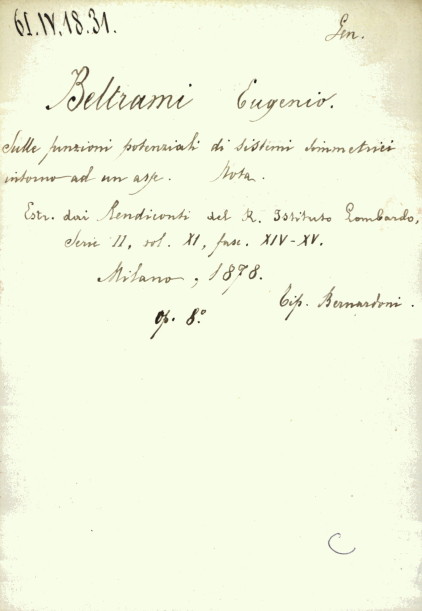 61.IV.18.31.
Gen.
Beltrami Eugenio.
Sulle funzioni potenziali di sistemi simmetrici
intorno ad un asse. Nota.
Estr. dai Rendiconti del R. Istituto Lombardo,
Serie II, vol. XI, fasc. XIV-XV.
Milano, 1878.
Tip. Bernardoni.
op. 8.°
C